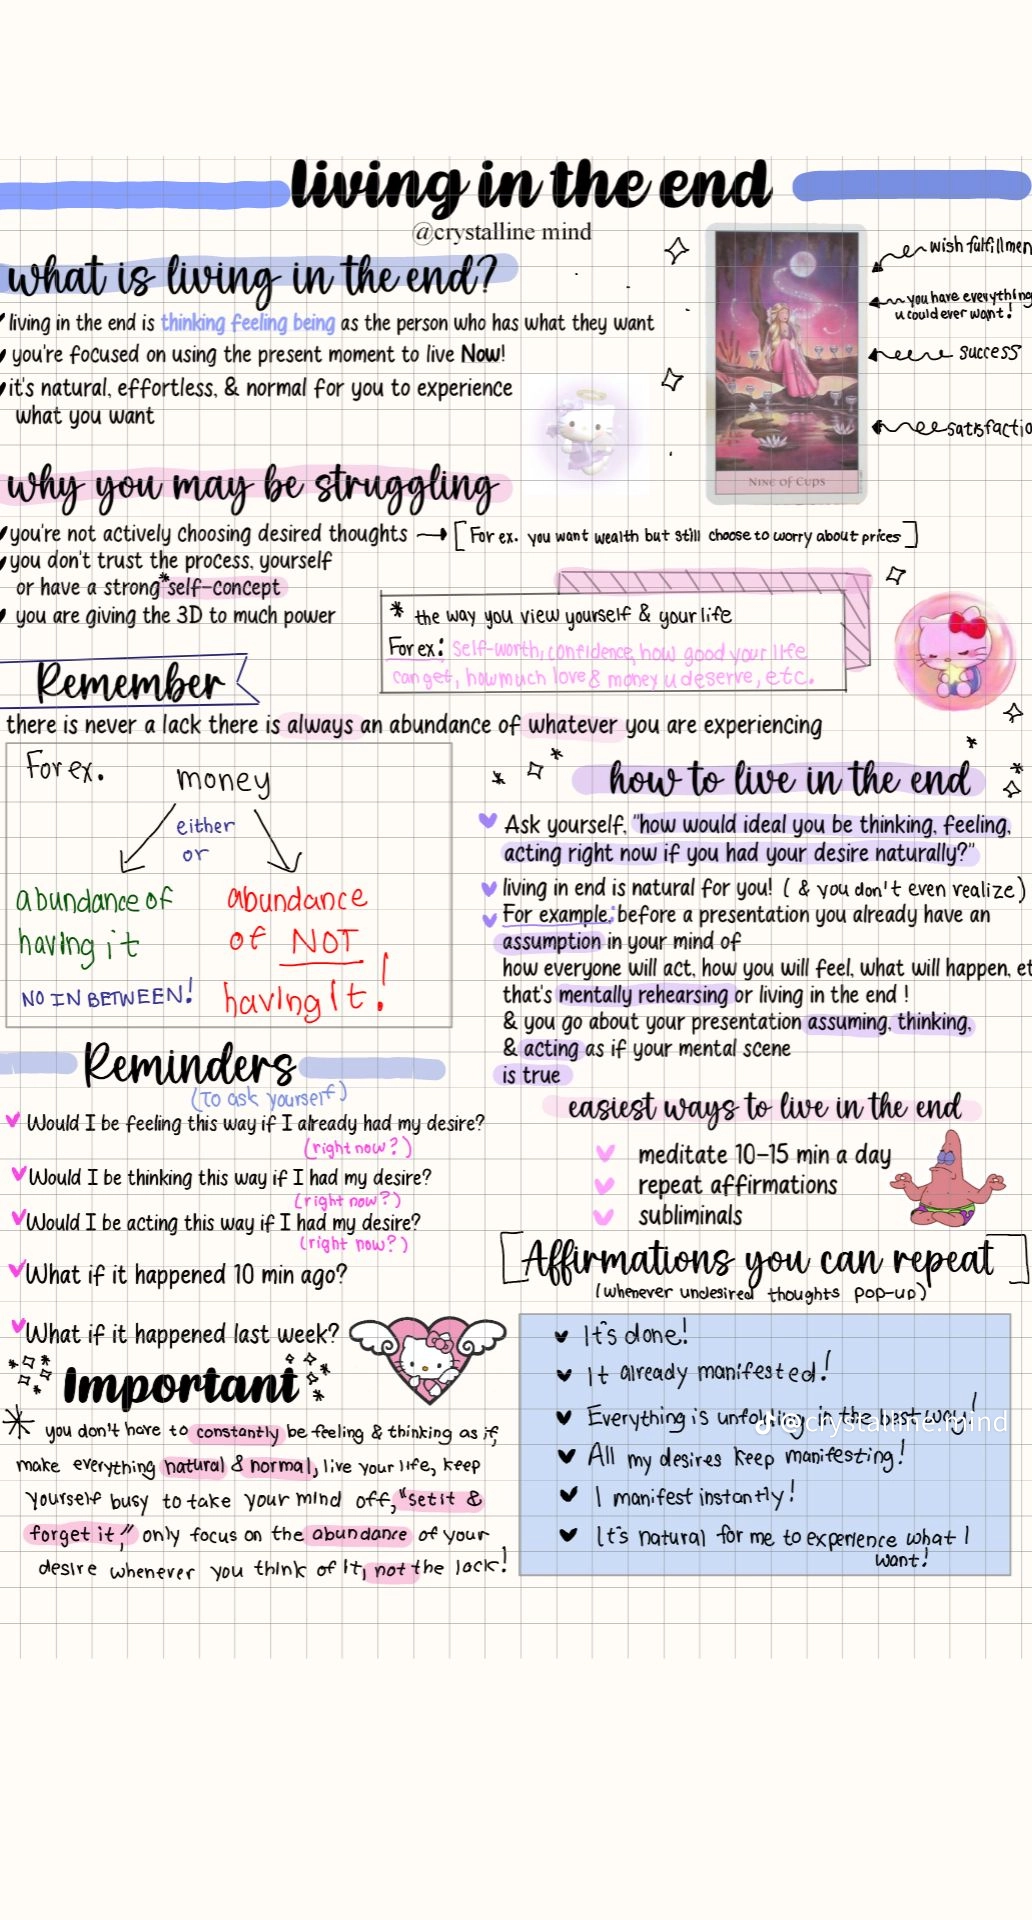 living in the end
@crystalline mind
what is living in the end?
living in the end is thinking feeling being as the person who has what they want
you're focused on using the present moment to live Now!
it's natural, effortless, & normal for you to experience
what you want
wish fulfillmen
you have everything
u could ever want!
success
satisfactio
NINE OF CUPS
why you may be struggling
you're not actively choosing desired thoughts → [For ex. you want wealth but still choose to worry about prices]
you don't trust the process, yourself
or have a strong *self-concept
you are giving the 3D to much power
* the way you view yourself & your life
For ex: self-worth, confidence, how good your life
can get, how much love & money u deserve, etc.
Remember
there is never a lack there is always an abundance of whatever you are experiencing
For ex.
money
either
or
abundance of
having it
abundance
of NOT
having it!
NO IN BETWEEN!
how to live in the end
Ask yourself, "how would ideal you be thinking, feeling,
acting right now if you had your desire naturally?"
living in end is natural for you! ( & you don't even realize)
For example: before a presentation you already have an
assumption in your mind of
how everyone will act, how you will feel, what will happen, et
that's mentally rehearsing or living in the end !
& you go about your presentation assuming, thinking,
& acting as if your mental scene
is true
Reminders
(To ask yourself)
Would I be feeling this way if I already had my desire?
(right now?)
Would I be thinking this way if I had my desire?
(right now?)
Would I be acting this way if I had my desire?
(right now?)
What if it happened 10 min ago?
What if it happened last week?
easiest ways to live in the end
meditate 10-15 min a day
repeat affirmations
subliminals
[Affirmations you can repeat]
(whenever undesired thoughts pop-up)
It's done!
It already manifested!
Everything is unfolding in the best way!
@crystalline.mind
All my desires keep manifesting!
I manifest instantly!
It's natural for me to experience what I
want!
Important
* you don't have to constantly be feeling & thinking as if,
make everything natural & normal, live your life, keep
yourself busy to take your mind off, "set it &
forget it," only focus on the abundance of your
desire whenever you think of it, not the lack!